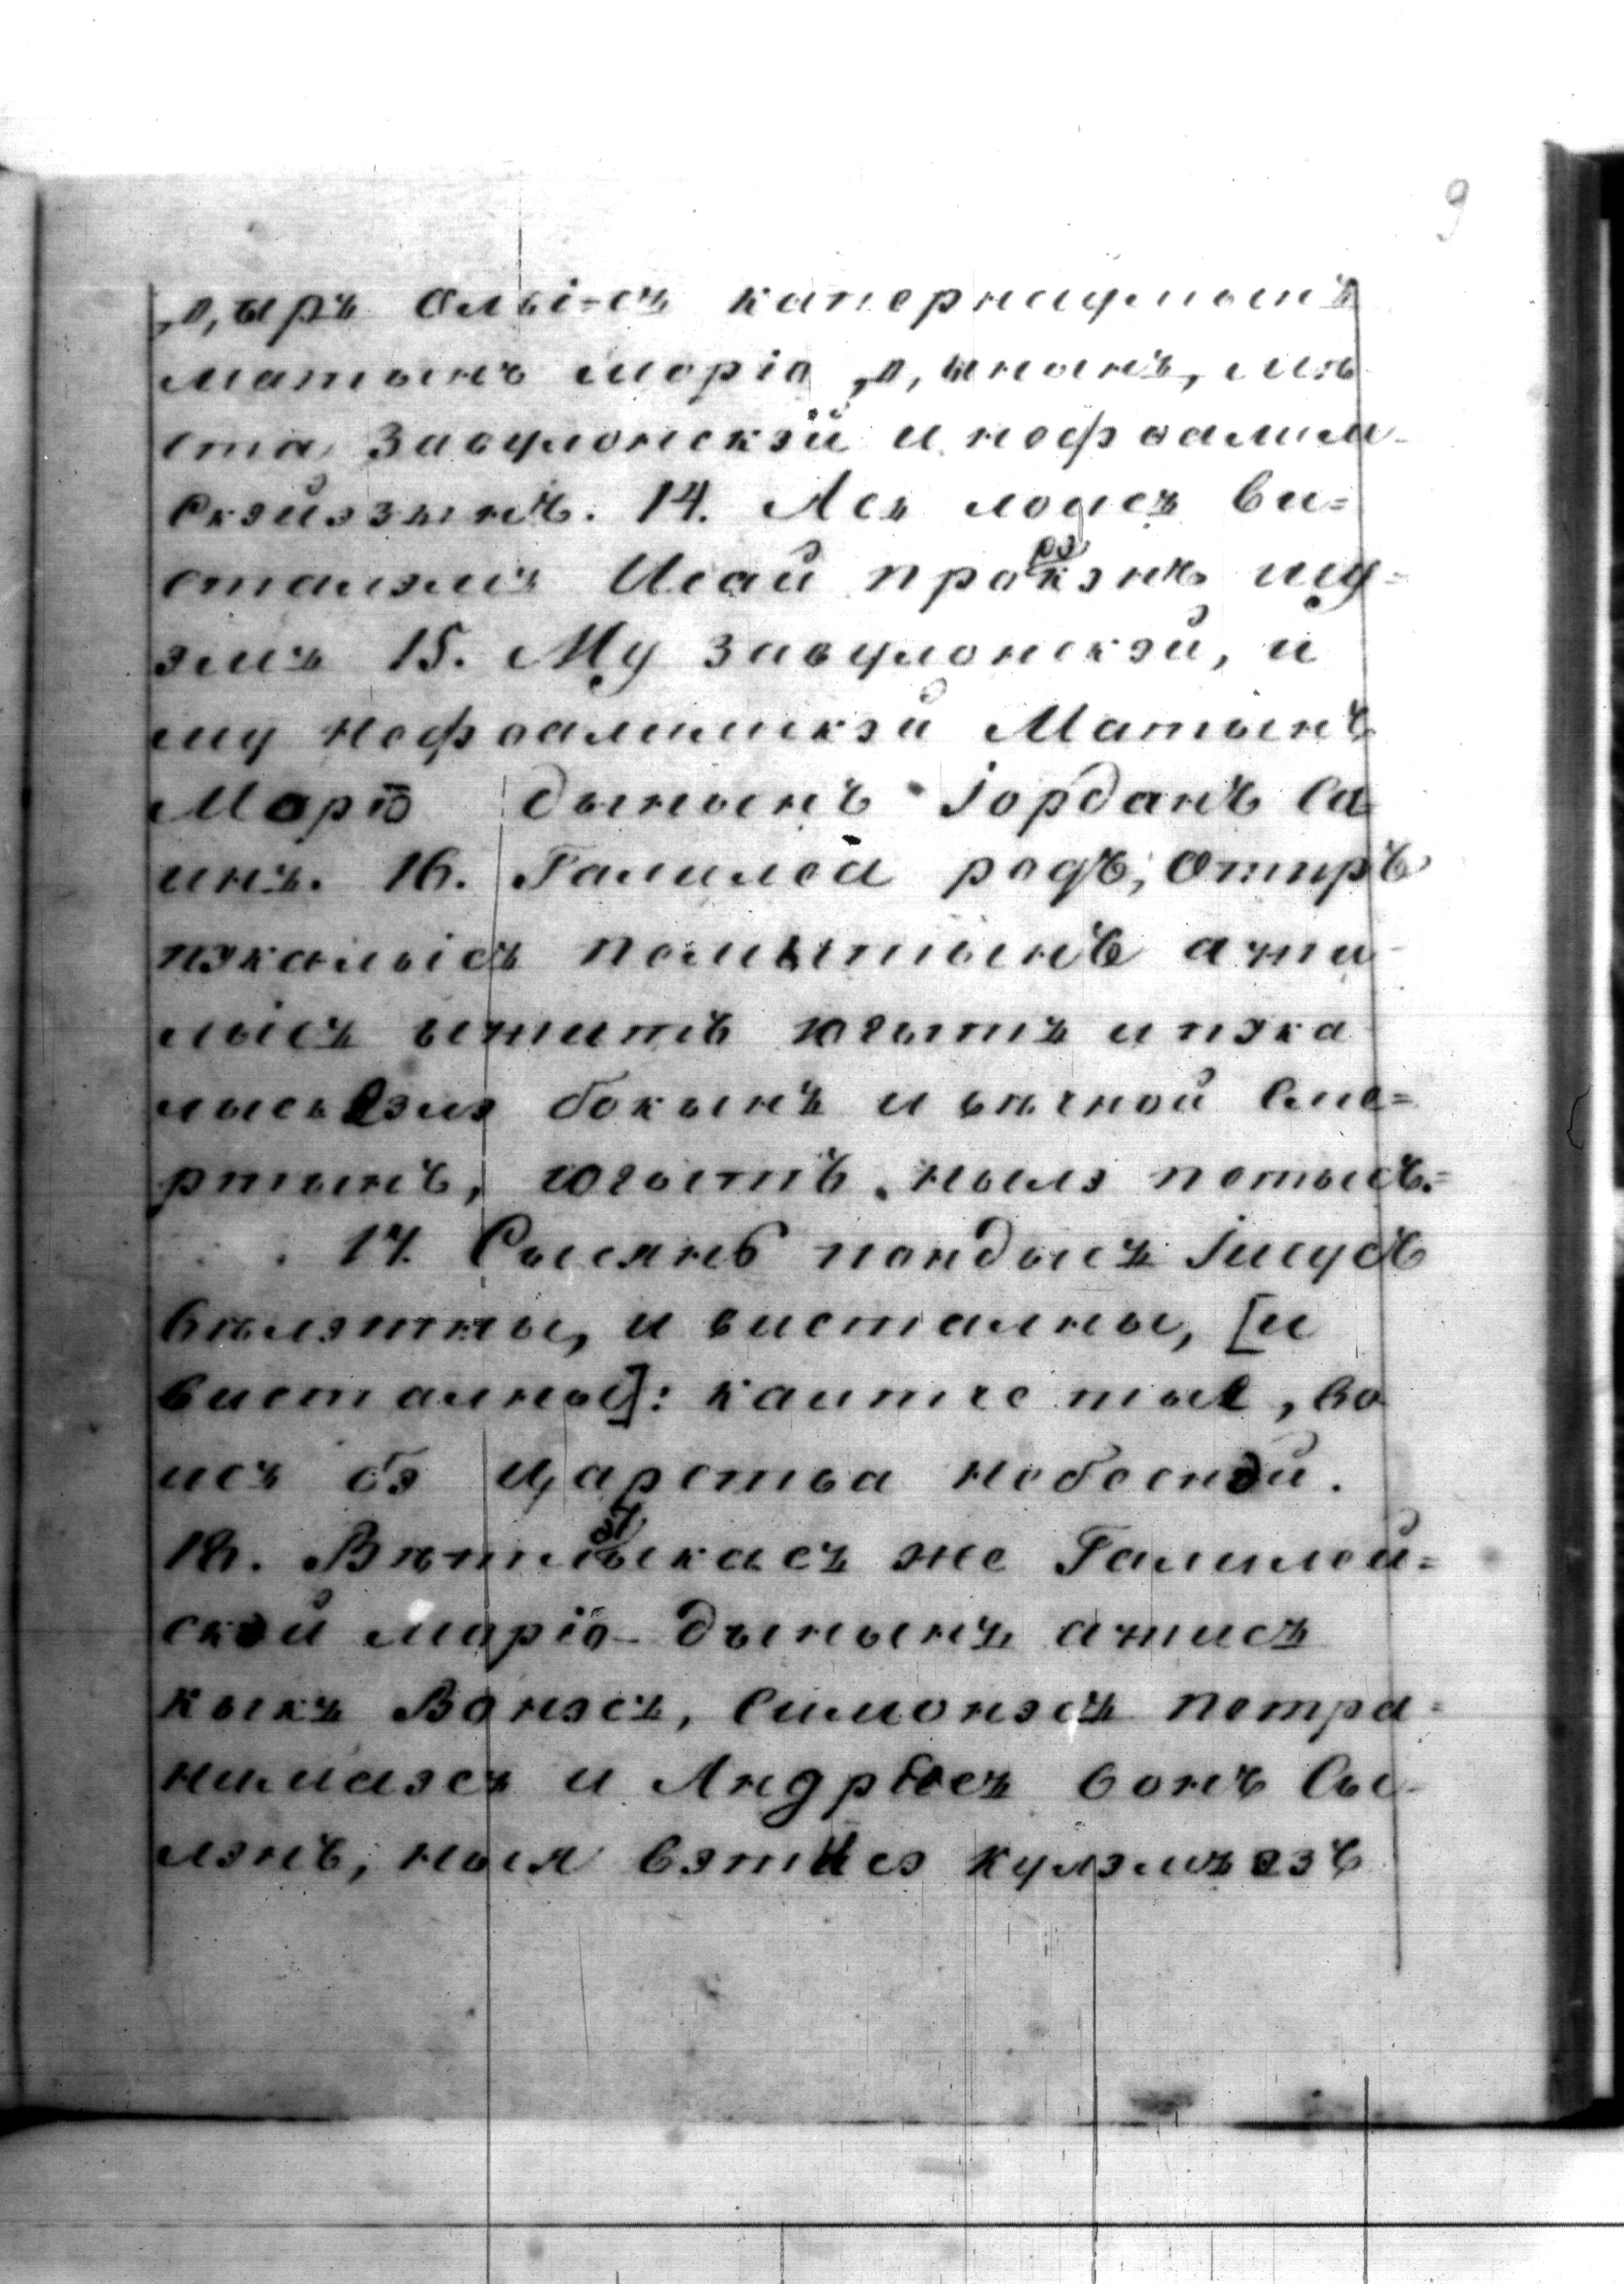 9
„п„ыръ олыі-съ капернаумынъ
матынъ моріо „п„ынынъ, мѣ-
ста завулонскэй и нефѳалим-
скэйэзынъ. 14. Ась лоисъ ви=
сталэмъ Исай прорэкэнъ шу=
эмъ 15. Му завулонскэй, и
му нефѳалимскэй Матынъ
Моріо дынынъ іорданъ са
инъ. 16. Галилеа родъ, отиръ
пэкалысъ пемытынъ ачи-
лысъ ыжитъ югытъ и пэка
лысьезлэ бокынъ и вѣчной сме=
ртынъ, югытъ нылэ петысъ.=
17. Сысянь пондысъ іисусъ
вѣлэтны, и висталны, [и
висталны]: каитче тые, во
исъ бэ царства небеснэй.
18. Вѣтлыкасъ же Галилей=
скэй моріо дынынъ ачисъ
кыкъ Вонэсъ, симонэсъ петра=
нимаэсъ и Андрѣосъ вонъ сы-
лэнъ, ныя вэтчсэ кулэмъезъ